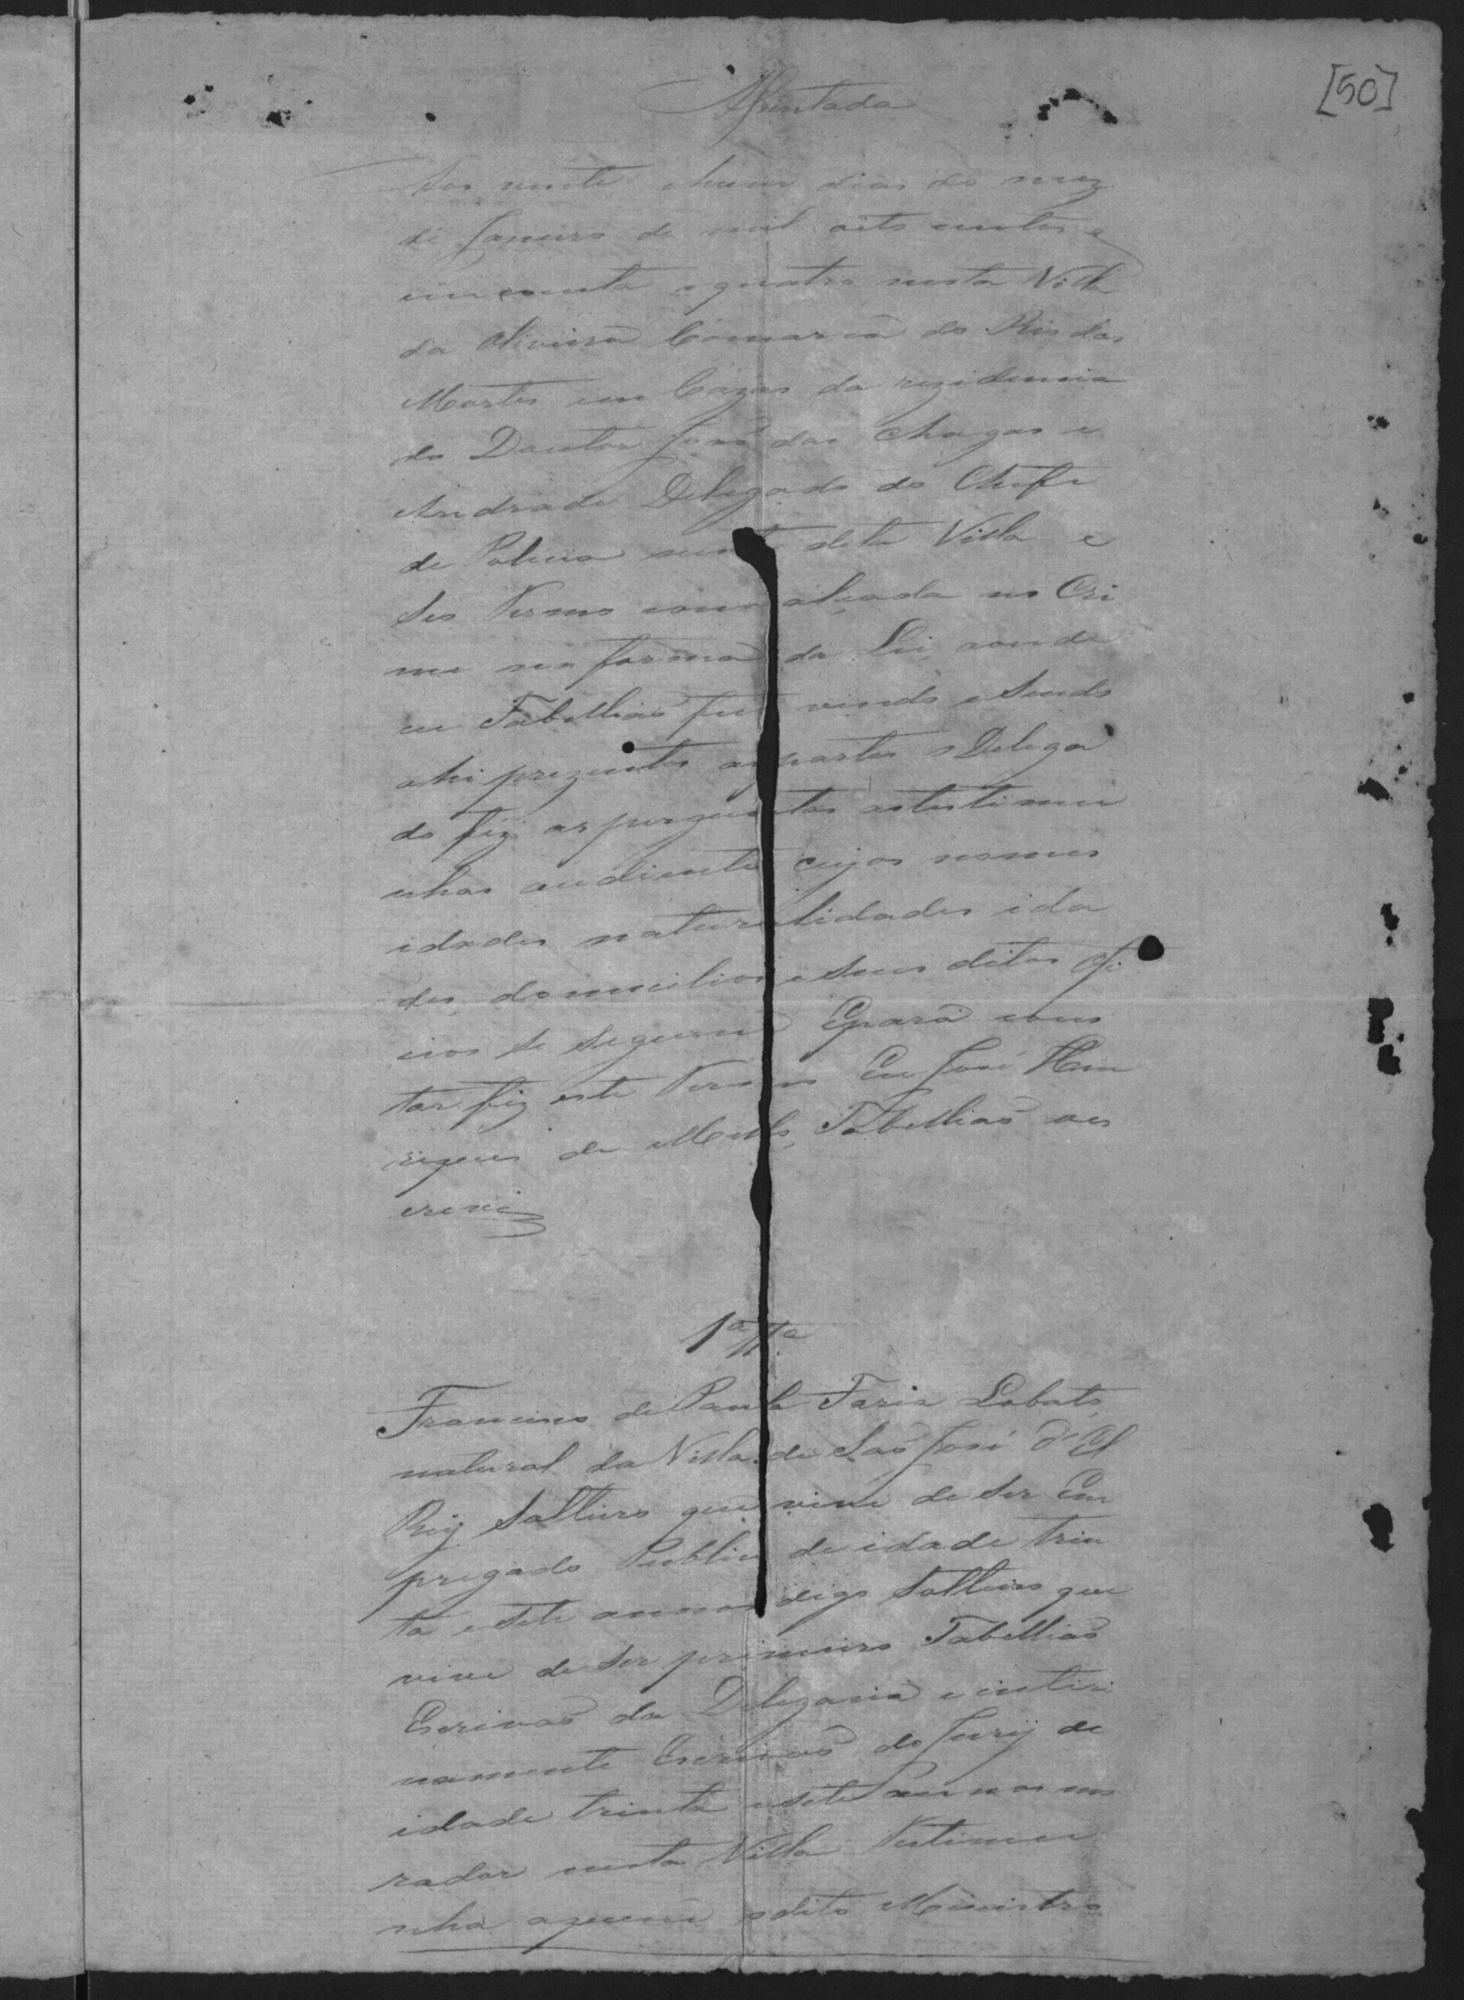 [50]
Assentada
Aos vinte ehum dias do mez
de Janeiro de mil oito centos e
cincoenta equatro nesta Villa
da Oliveira Comarca do Rio das
Mortes em Cazas da rezidencia
do Doutor José das Chagas e
Andrade Delegado do Chefe
de Policia desta Villa e
seo Termo com alçada no Cri
me na forma da Lei, aonde
eu Tabelliaõ fui vindo e sendo
ahi prezentes as partes o Delega
do fez as perguntas as testimu
nhas audiente cujos nomes
idades naturalidades ida
des domicilios e seus ditos Offi
cios se seguem Epara cons
tar fiz este Termo Eu José Hen
riques de Mello, Tabelliaõ oes
crevi
1ª Tª
Francisco de Paula Faria Lobato,
natural da Villa de Saõ José d'El
Rey Solteiro que vive de ser Em
pregado Publico de idade trin
ta esete annos digo Solteiro que
vive de ser primeiro Tabelliaõ
Escrivaõ da Delegacia e interi
namente Escrivaõ do Jury de
idade trinta esete annos mo
rador nesta Villa Testimu
nha aquem odito Ministro